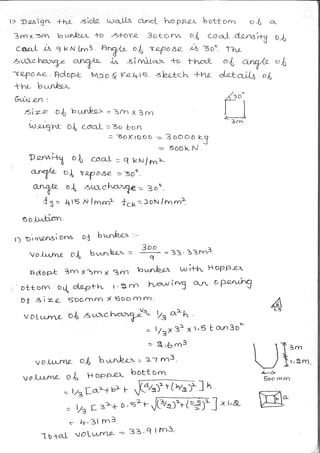 1) Design the side walls and hopper bottom of a
3m x 3m bunker to store 30tons of coal density of
Coal is 9 kN/m3. Angle of repose is 30°. The
surcharge angle is similar to that of angle of
repose. Adopt M20 & Fe415. sketch the details of
the bunker.
Given :
Size of bunker = 3m x 3m
weight of coal = 30 ton
= 30x1000 = 30000 kg
= 300kN.
Density of coal = 9 kN/m2
angle of repose = 30°.
angle of surcharge = 30°.
fy = 415 N/mm2 fck = 20N/mm2.
30°
3m
Solution.
1) Dimensions of bunker :-
volume of bunker = 300/9 = 33.33m3.
Adopt 3m x 3m x 3m bunker with Hopper
bottom of depth 1.2m having an opening
of size 500mm x 500mm.
volume of surcharge = 1/3 a2h.
= 1/3 x 32 x 1.5 tan30°
= 2.6m3
1.5
volume of bunker = 27 m3.
volume of Hopper bottom
= 1/3 [a2+b2 + √(a/2)2+(b/2)2] h
= 1/3 [32 + 0.52 + √(3/2)2+(0.5/2)2] x 1.2
= 4.31 m3.
Total volume = 33.91m3.
3m
1.2m.
500 mm
a